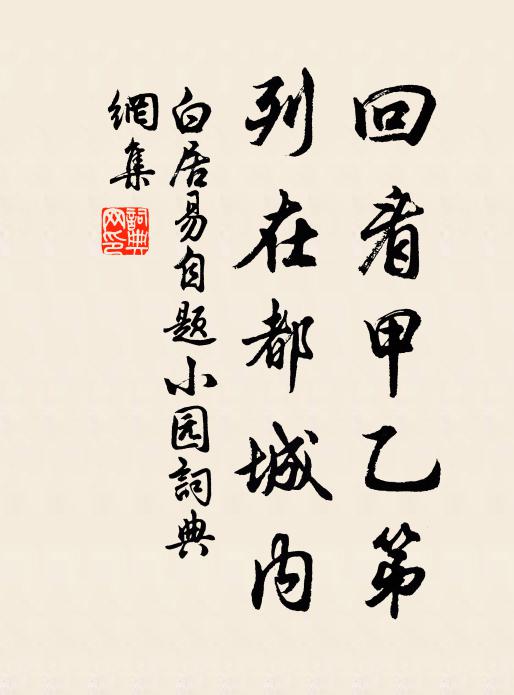 回看甲乙第
列在都城内
白居易自题小园詞典
網集
詞典网印